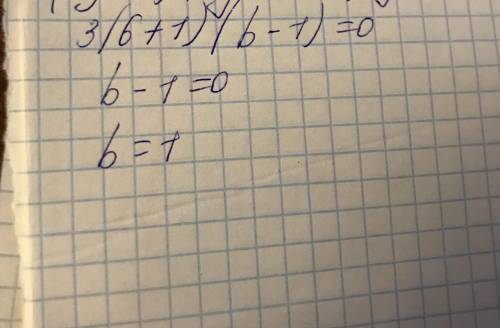 3(b+1)(b-1)=0
b-1=0
b=1